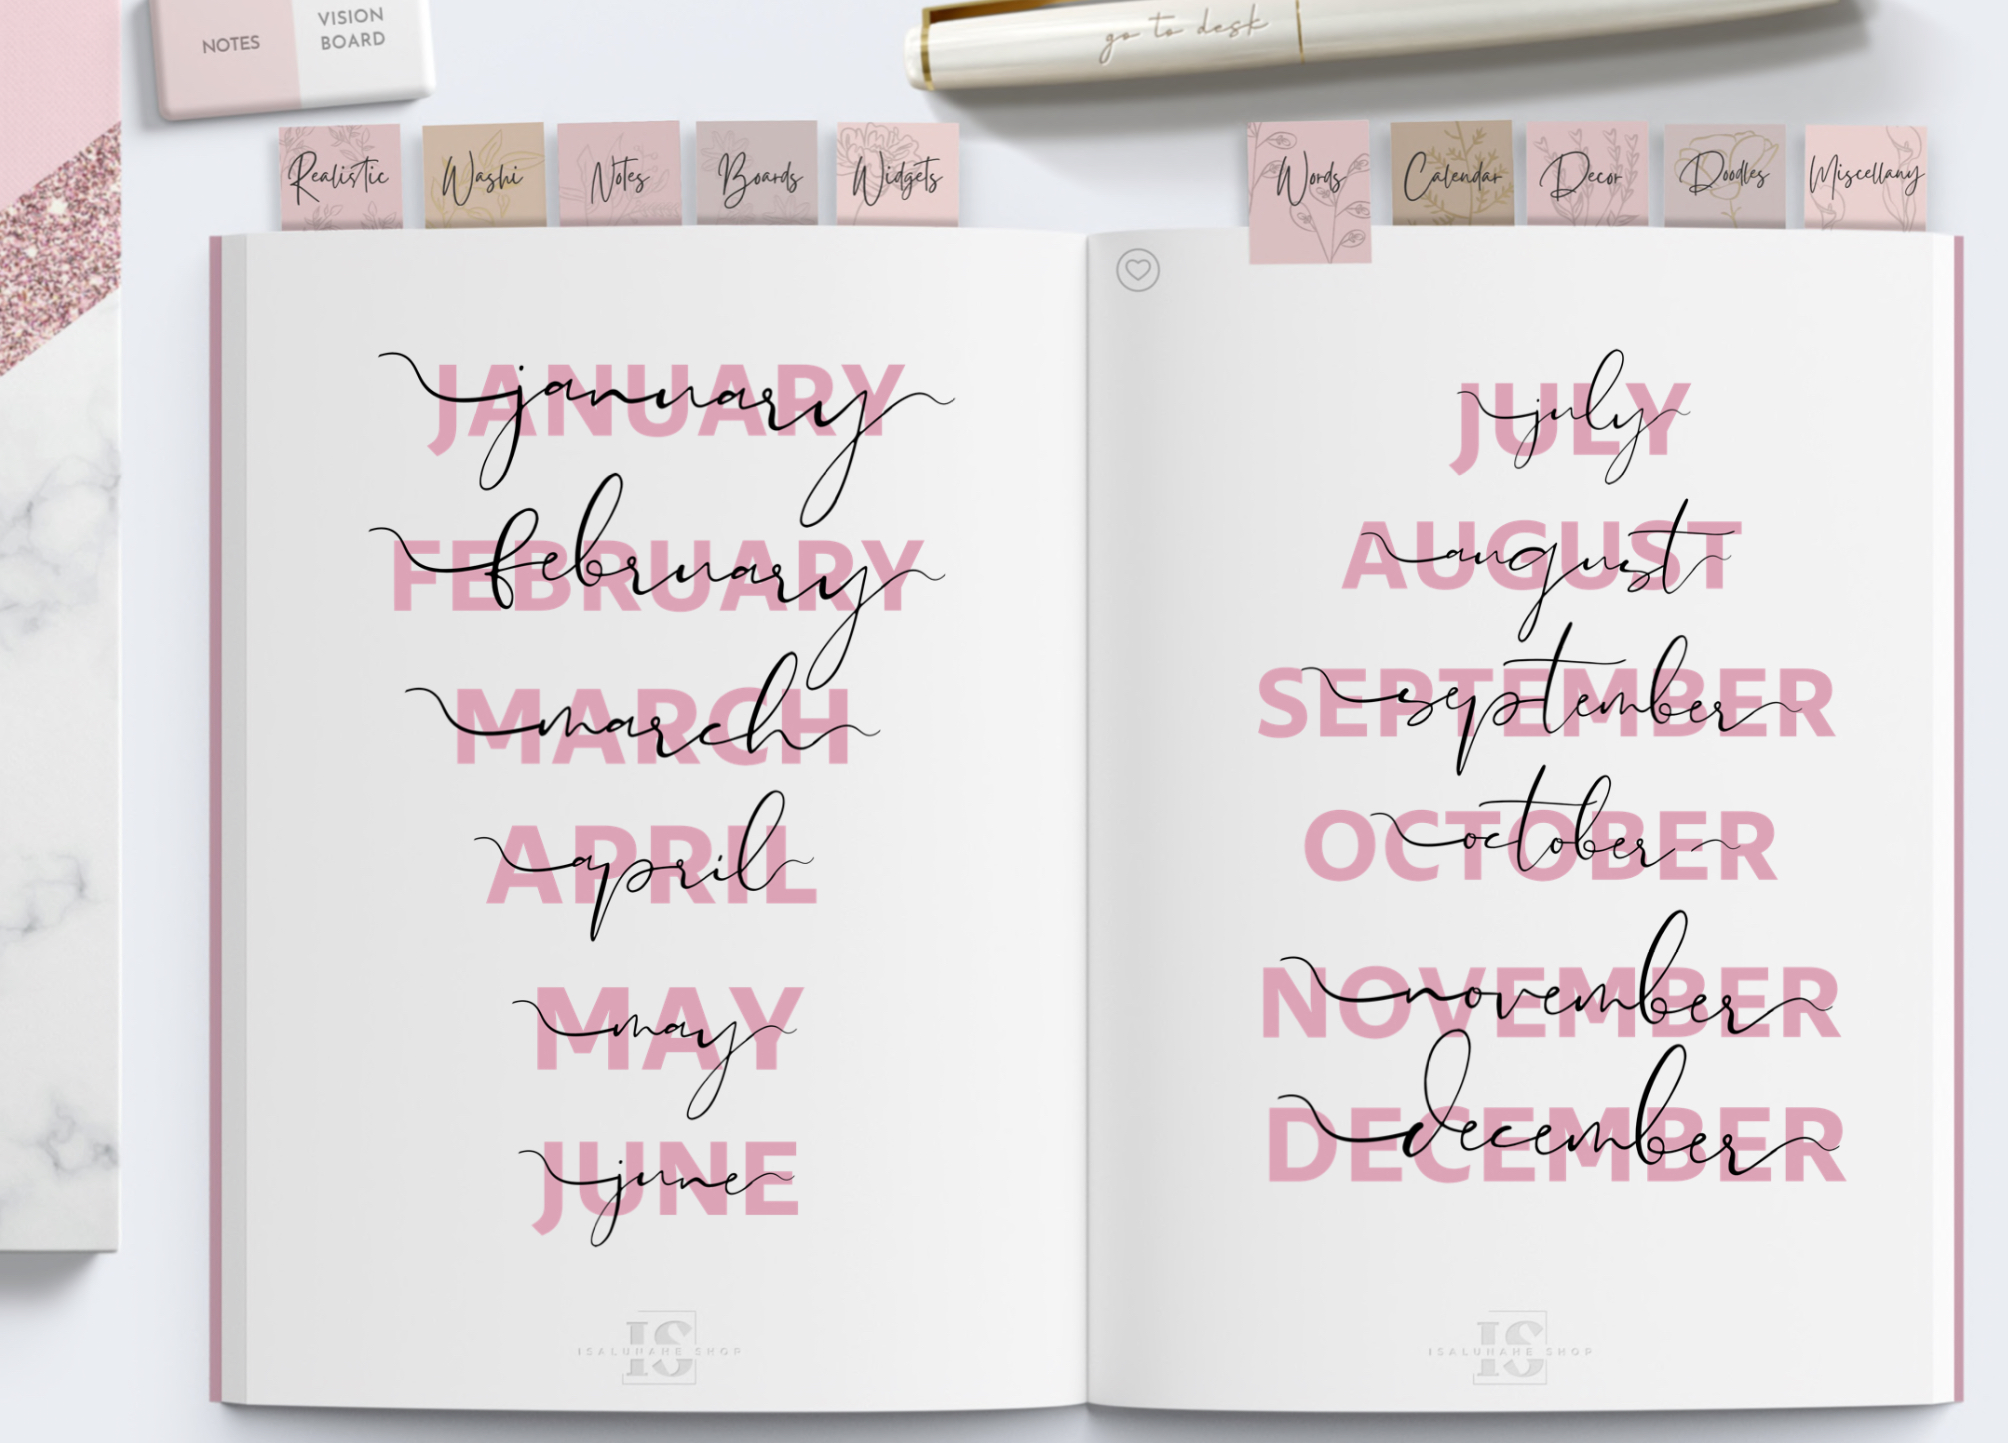 NOTES
VISION
BOARD
go to desk
Realistic
Washi
Notes
Boards
Widgets
Words
Calendar
Decor
Doodles
Miscellany
JANUARY
january
FEBRUARY
february
MARCH
march
APRIL
april
MAY
may
JUNE
june
IS
ISALUNAHE SHOP
JULY
july
AUGUST
august
SEPTEMBER
september
OCTOBER
october
NOVEMBER
november
DECEMBER
december
IS
ISALUNAHE SHOP